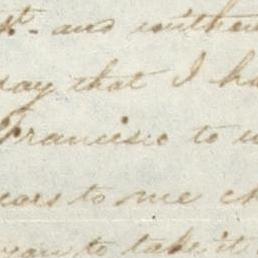 st. and withou
say that I ha
Francisco to
ears to me
to take it